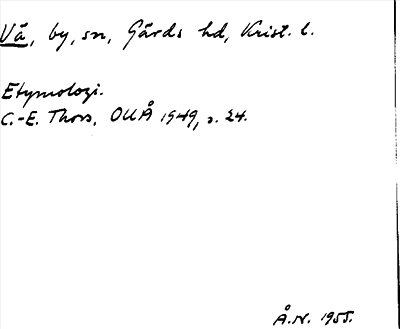 Vä, by, sn, Gärds hd, Krist. l.
Etymologi.
C.-E. Thors, OUÅ 1949, s. 24.
Å.N. 1955.